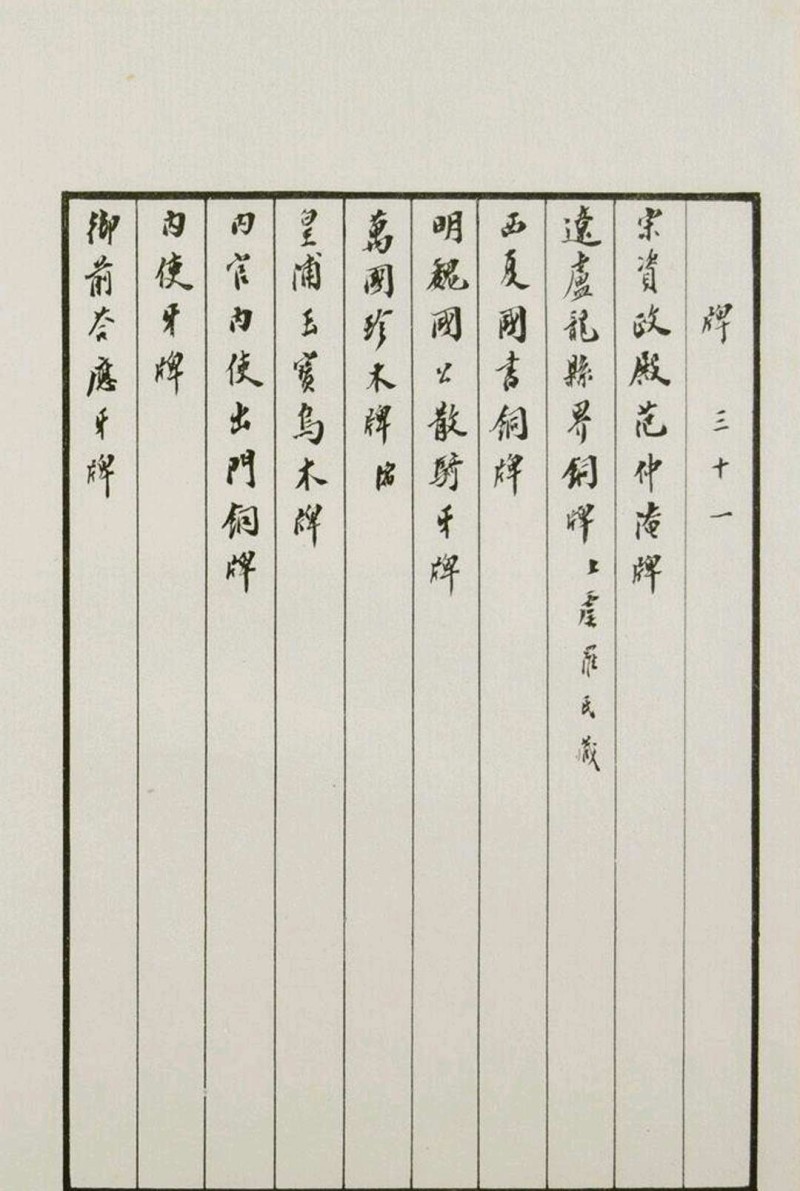 牌 三十一
宋資政殿范仲淹牌
遼盧龍縣界銅牌 上虞羅氏藏
西夏國書銅牌
明魏國公散騎牙牌
萬國珍木牌
皇浦玉寶烏木牌
内官内使出門銅牌
内使牙牌
御前答應牙牌